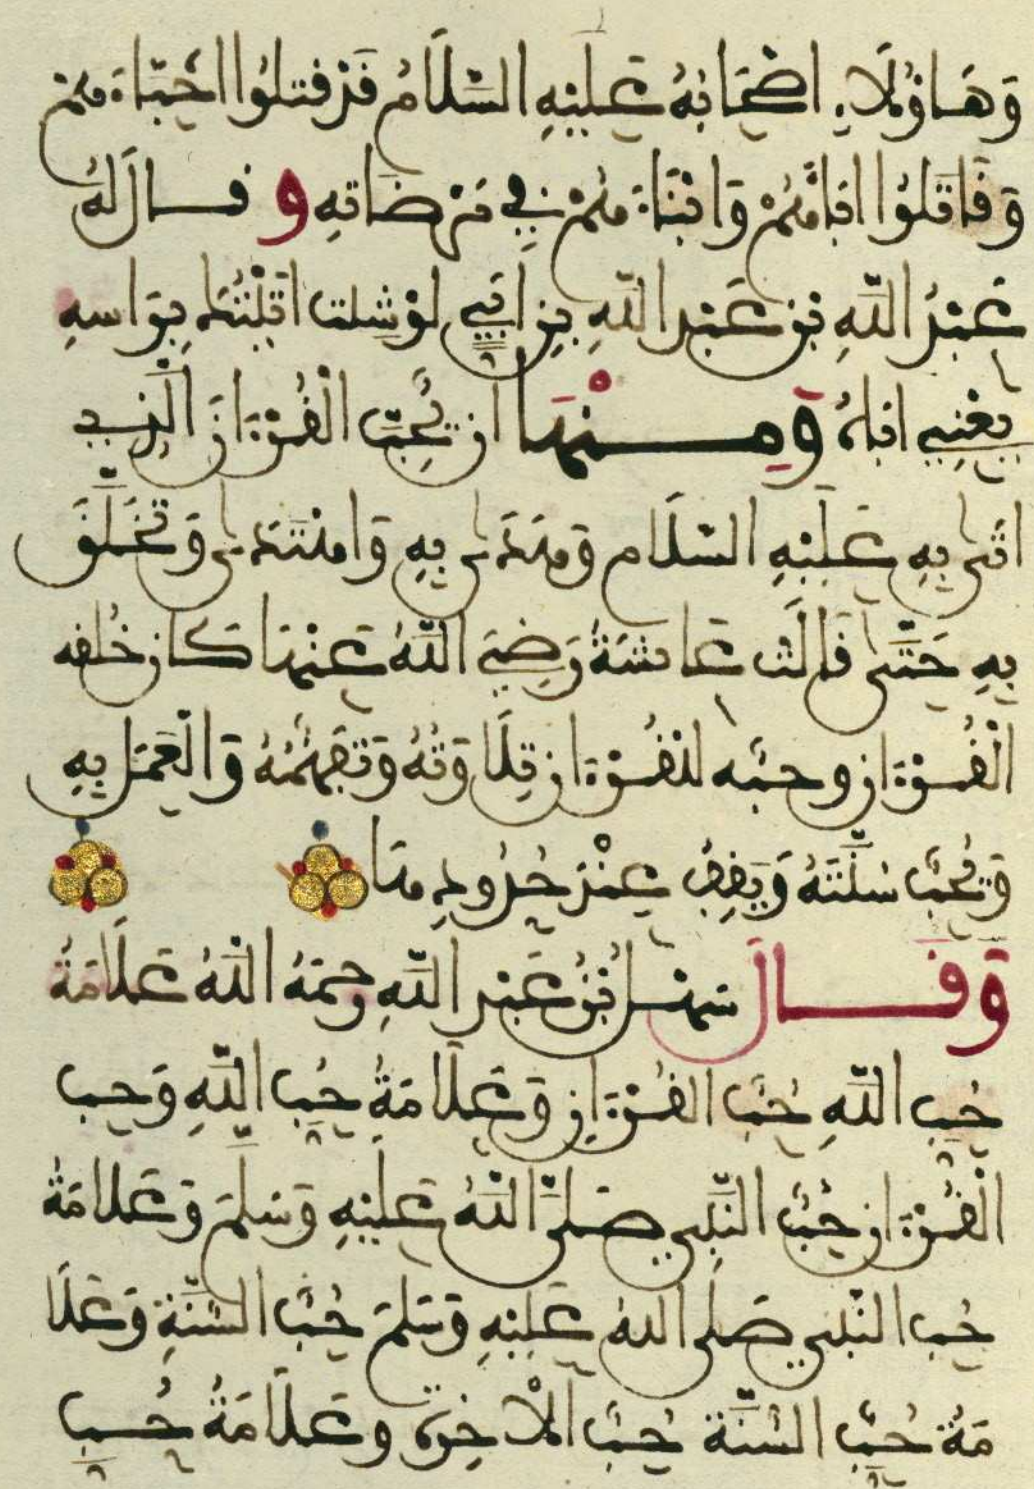 وَهَاؤُلَاءِ اصْحَابُهُ عَلَيْهِ السَّلَامُ قَدْ قتلُوا احِبَّاءَهمْ
وَقَاتَلُوا ابَاءَهُمْ وَابْنَاءَهُمْ فِي مَرْضَاتِهِ وقال لَهُ
عَبْدُ اللَّهِ بْنُ عَبْدِ اللَّهِ بْنِ ابَيٍّ لوْ شِئتَ اتَيْتُكَ بِرَاسِهِ
يَعْنِي ابَاهُ وَمِنْهَا ان يُحِبَّ الْقُرْءَانَ الَّذِي
اتَى بِهِ عَلَيْهِ السَّلَام وَهَدَى بِهِ وَاهْتَدَى وَتَخَلَّقَ
بِهِ حَتَّى قَالَتْ عَائشَةُ رَضِيَ اللَّهُ عَنْهَا كَان خُلُقه
الْقُرْءَان وحبّه للْقُرْءَان تِلَاوَتُهُ وَتَفَهُّمُهُ وَالْعَمَل بِهِ
وَيُحبّ سُنَّتَهُ وَيَقِفُ عِنْدَ حُدُودِهَا
وَقَالَ سَهْلُ بْنُ عَبْدِ اللَّهِ رحِمَهُ اللَّهُ عَلَامَةُ
حُبِّ اللَّهِ حُبّ القُرْءَانِ وَعَلَامَةُ حُبِّ اللَّهِ وَحب
الْقُرْءَان حُبُّ النَّبِي صَلَّى اللَّهُ عَلَيْهِ وَسَلَّمَ وَعَلَامَةُ
حُب النَّبي صَلى الله عَلَيْهِ وَسَلمَ حُبُّ السُّنَّةِ وَعَلَا
مَةُ حُبِّ السُّنَّة حُبّ الْاخِرَة وعَلَامَةُ حُبِّ